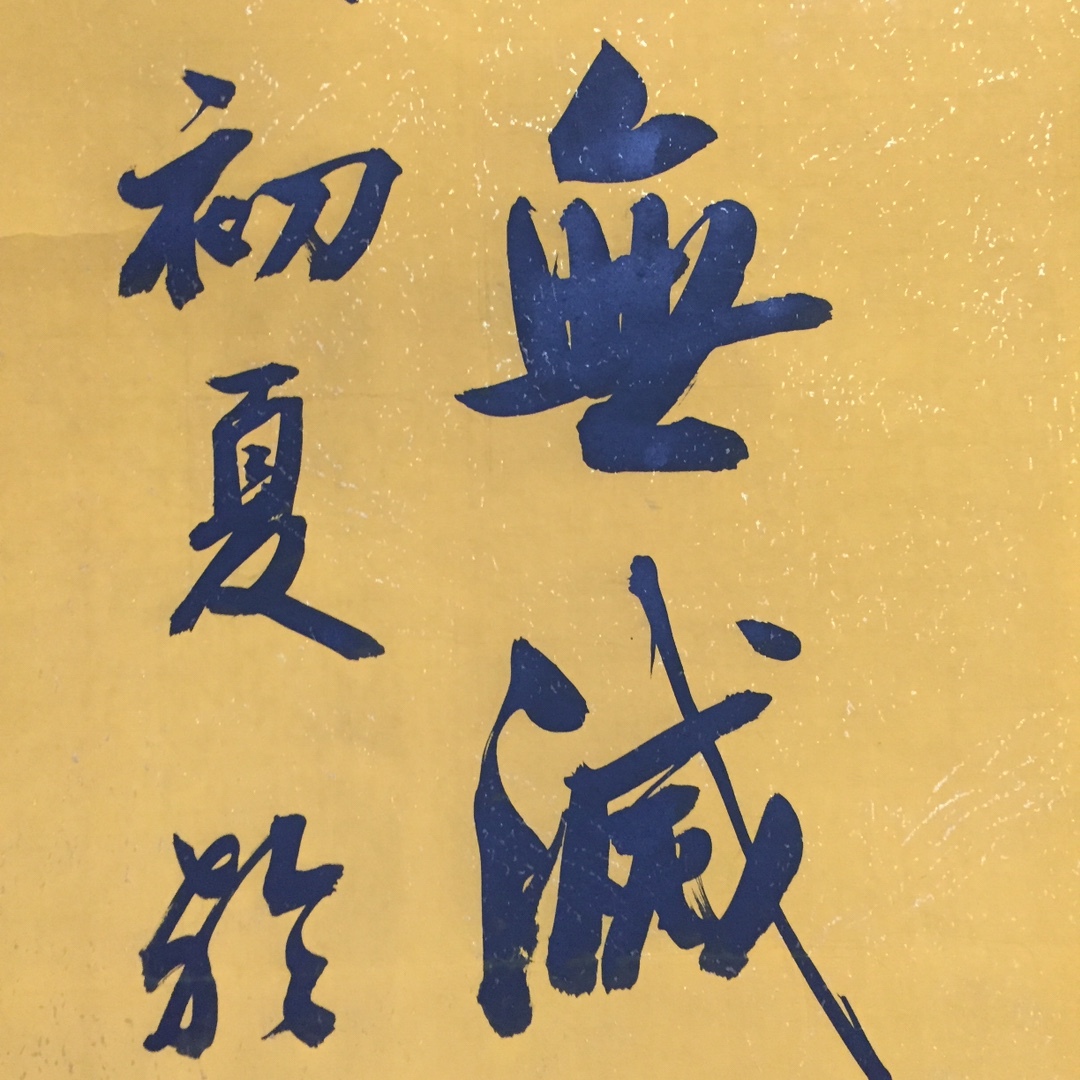 無滅
初夏於